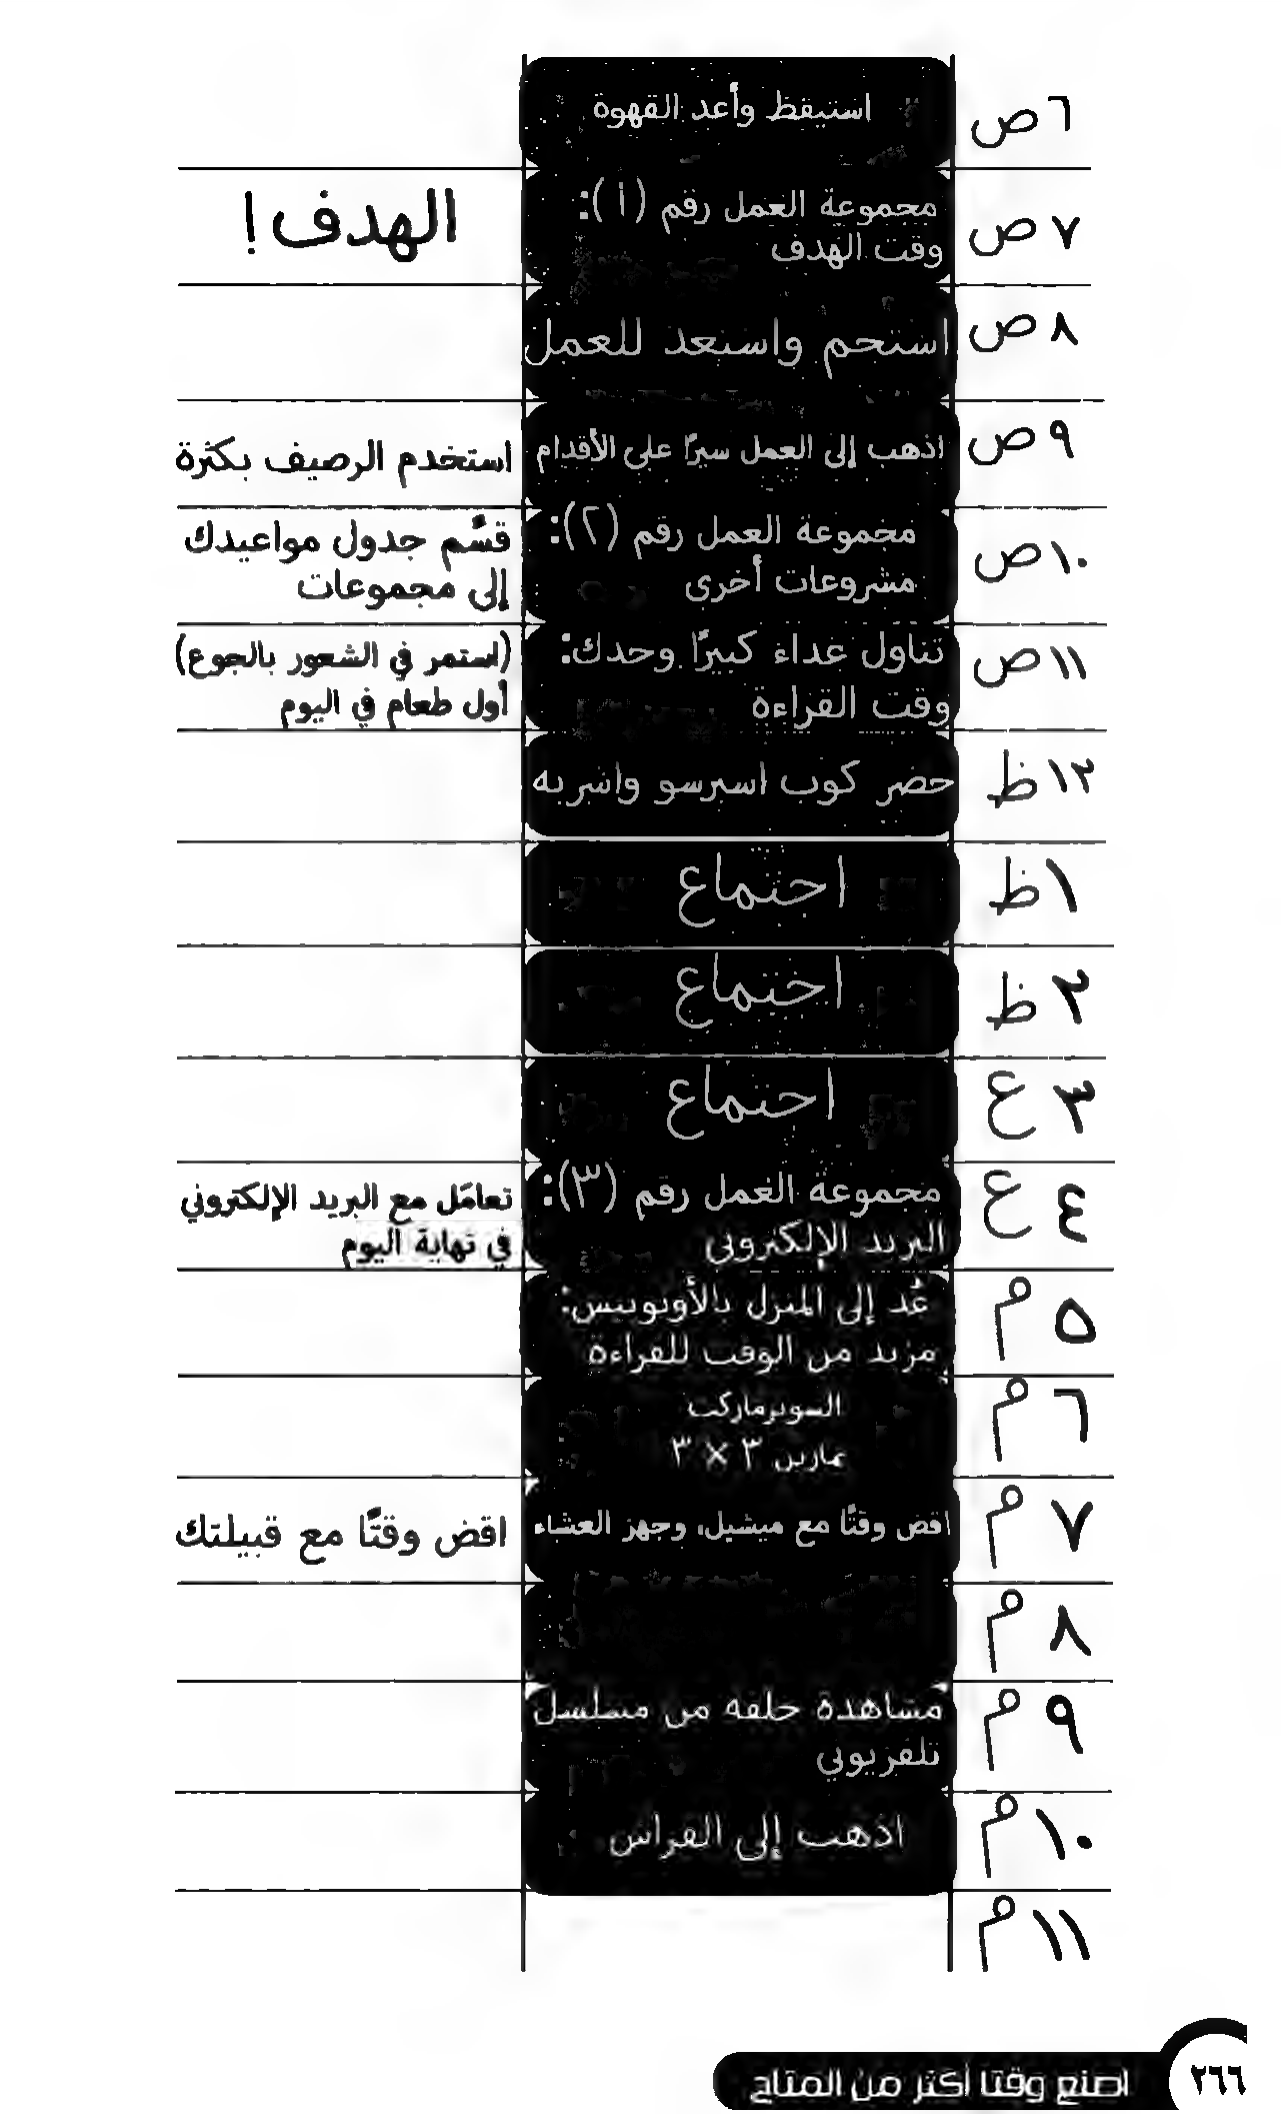 ٦ ص
استيقظ وأعد القهوة
٧ ص
مجموعة العمل رقم (١):
وقت الهدف
الهدف!
٨ ص
استحم واستعد للعمل
٩ ص
اذهب إلى العمل سيرًا على الأقدام
استخدم الرصيف بكثرة
١٠ ص
مجموعة العمل رقم (٢):
مشروعات أخرى
قسِّم جدول مواعيدك
إلى مجموعات
١١ ص
تناول غداء كبيرًا وحدك:
وقت القراءة
(استمر في الشعور بالجوع)
أول طعام في اليوم
١٢ ظ
حضر كوب اسبرسو واشربه
١ ظ
اجتماع
٢ ظ
اجتماع
٣ ع
اجتماع
٤ ع
مجموعة العمل رقم (٣):
البريد الإلكتروني
تعامَل مع البريد الإلكتروني
في نهاية اليوم
٥ م
عُد إلى المنزل بالأوتوبيس:
مزيد من الوقت للقراءة
٦ م
السوبرماركت
تمارين ٣ × ٣
٧ م
اقض وقتًا مع ميشيل، وجهز العشاء
اقض وقتًا مع قبيلتك
٨ م
٩ م
مشاهدة حلقة من مسلسل
تلفزيوني
١٠ م
اذهب إلى الفراش
١١ م
٢٦٦ اصنع وقتا أكثر من المتاح